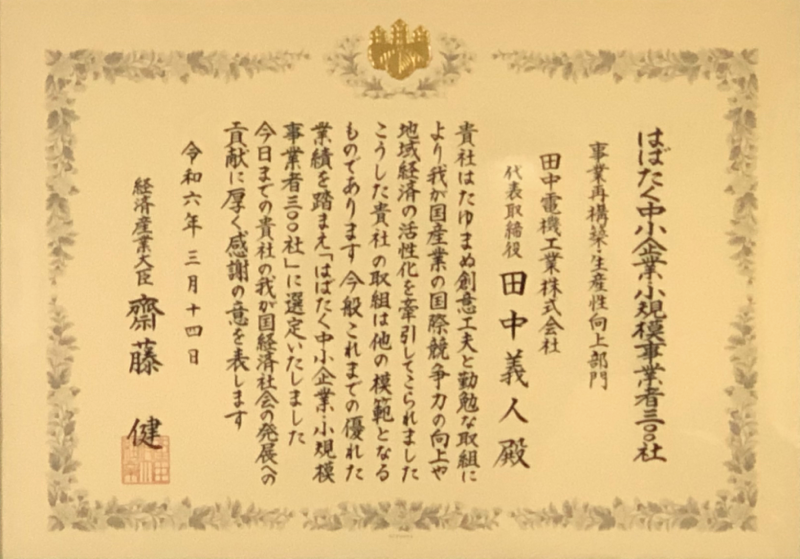 はばたく中小企業・小規模事業者三〇〇社
事業再構築・生産性向上部門
田中電機工業株式会社
代表取締役 田中義人殿
貴社はたゆまぬ創意工夫と勤勉な取組に
より我が国産業の国際競争力の向上や
地域経済の活性化を牽引してこられました
こうした貴社の取組は他の模範となる
ものであります 今般これまでの優れた
業績を踏まえ「はばたく中小企業・小規模
事業者三〇〇社」に選定いたしました
今日までの貴社の我が国経済社会の発展への
貢献に厚く感謝の意を表します
令和六年 三月十四日
経済産業大臣 齋藤 健